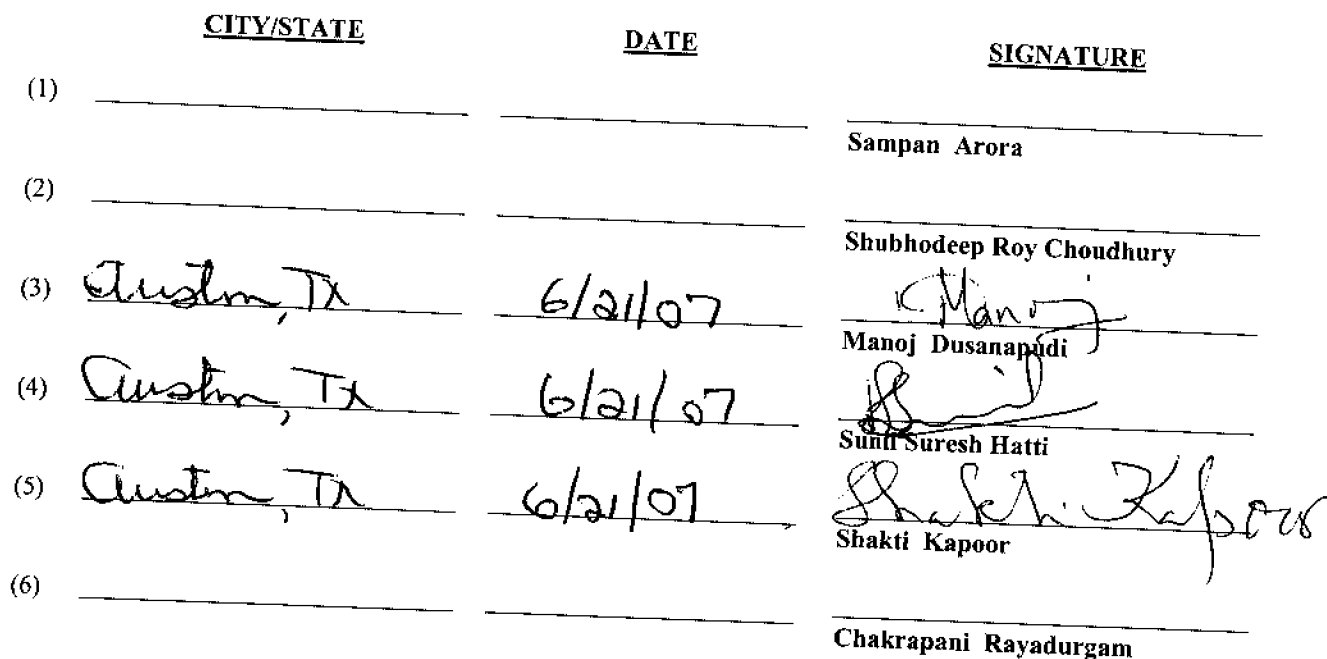 CITY/STATE DATE SIGNATURE
(1)
Sampan Arora
(2)
Shubhodeep Roy Choudhury
(3) Austin, TX 6/21/07 Manoj
Manoj Dusanapudi
(4) Austin, TX 6/21/07 Sunil
Sunil Suresh Hatti
(5) Austin, TX 6/21/07 Shakti Kapoor
Shakti Kapoor
(6)
Chakrapani Rayadurgam